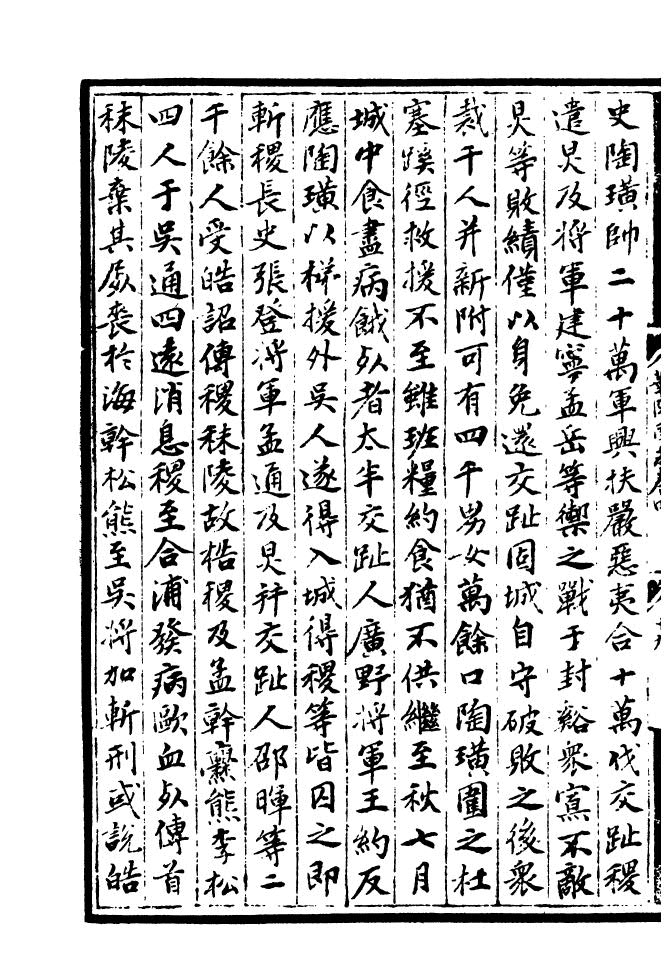 史陶璜帥二十萬軍興扶嚴惡夷合十萬伐交趾稷
遣炅及將軍建寧孟岳等禦之戰于封谿衆寡不敵
炅等敗績僅以身免還交趾固城自守破敗之後衆
裁千人并新附可有四千男女萬餘口陶璜圍之杜
塞蹊徑救援不至雖班糧約食猶不供繼至秋七月
城中食盡病餓死者太半交趾人廣野將軍王約反
應陶璜以梯援外吳人遂得入城得稷等皆囚之即
斬稷長史張登將軍孟通及炅并交趾人邵暉等二
千餘人受皓詔傳稷秣陵故梏稷及孟幹爨熊李松
四人于吳通四遠消息稷至合浦發病歐血死傳首
秣陵棄其屍喪於海幹松熊至吳將加斬刑或說皓